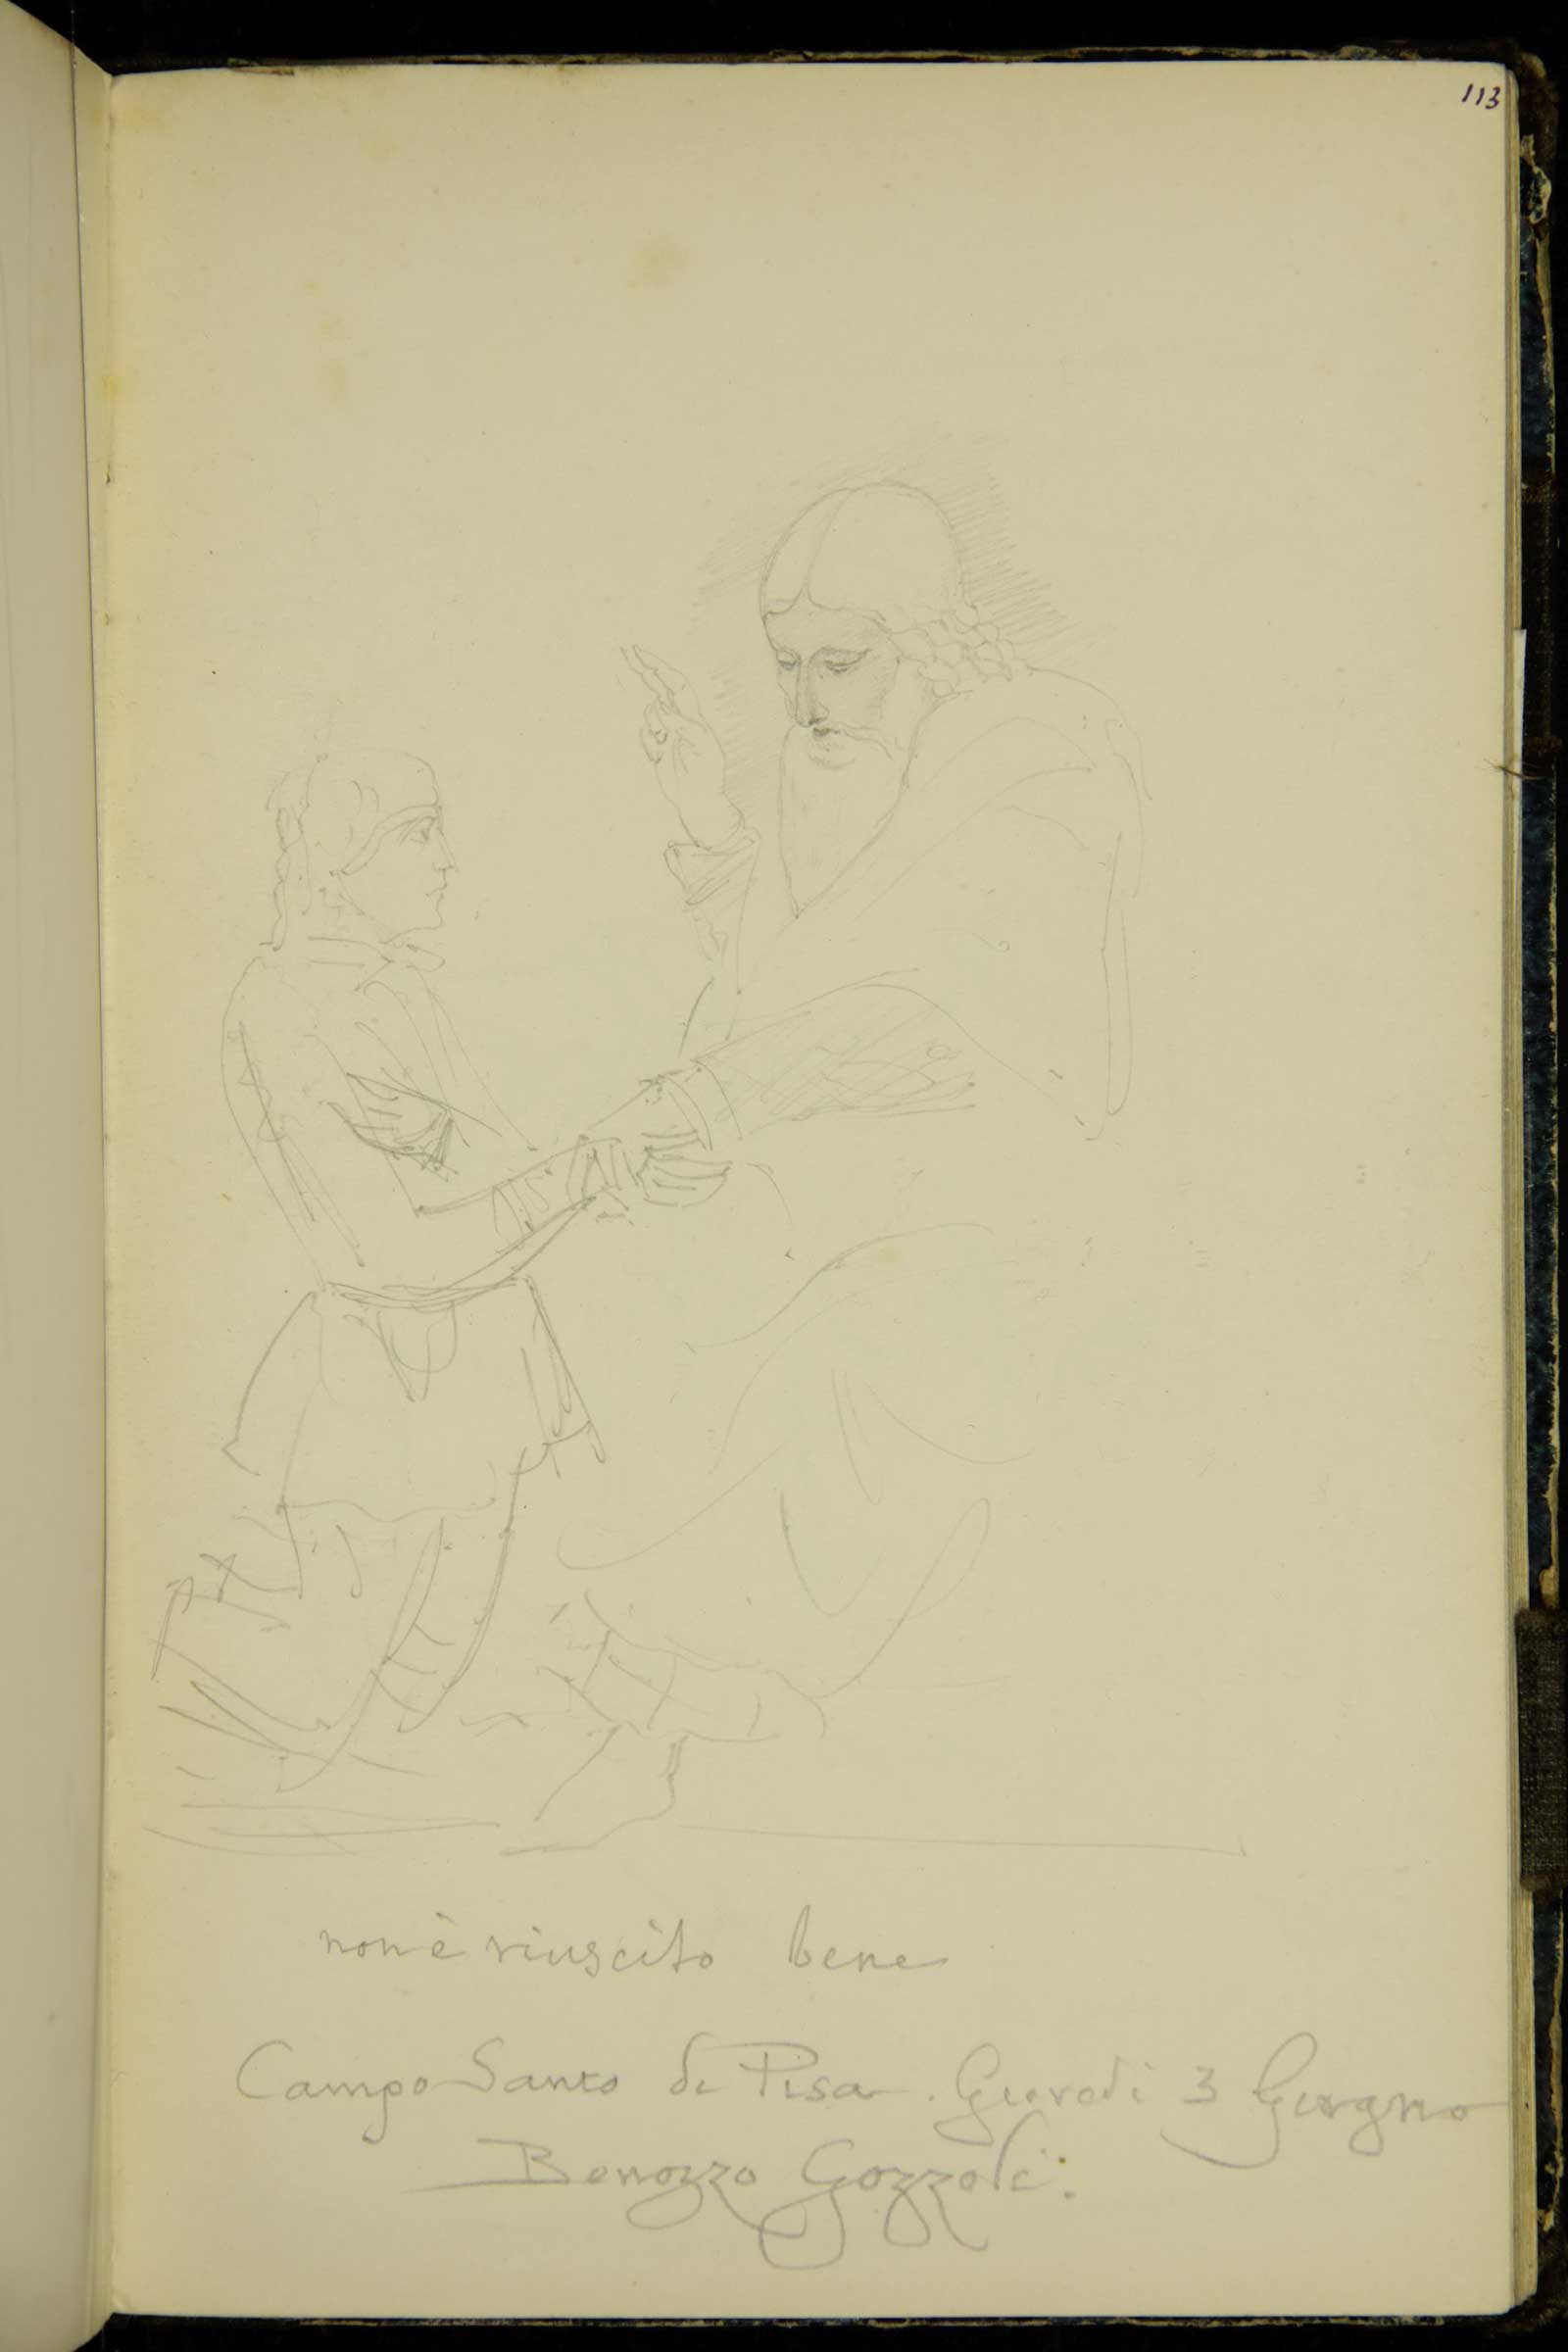 113
non è riuscito bene
Campo Santo di Pisa. Giovedi 3 Giugno
Benozzo Gozzoli.